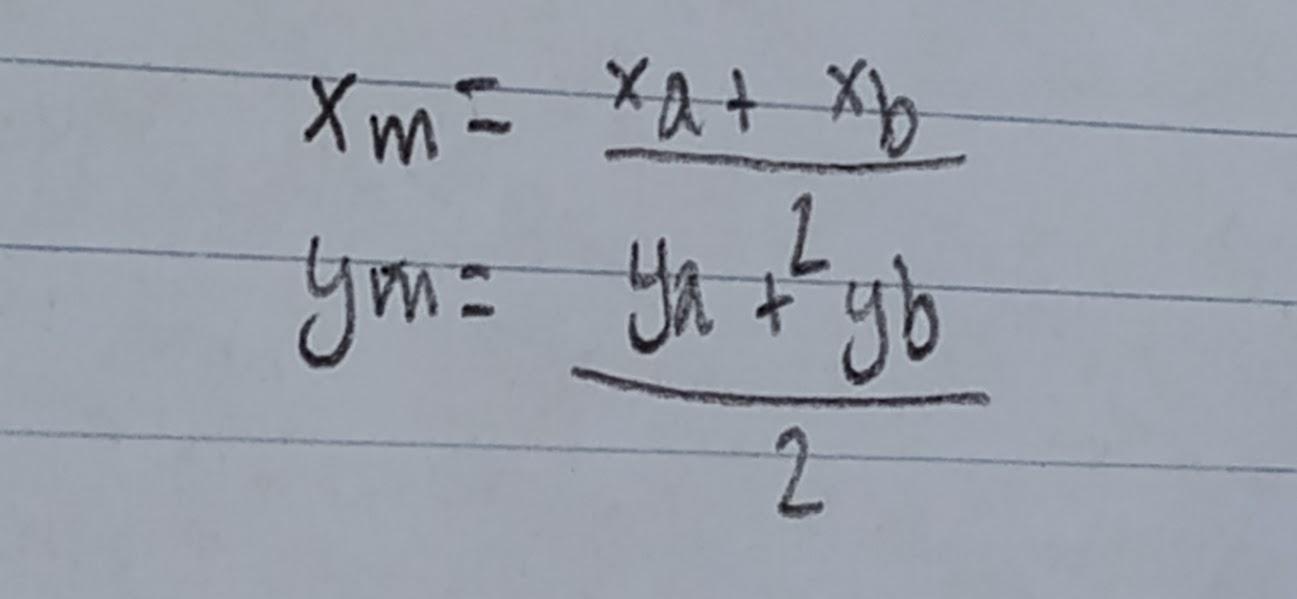 xm = xa + xb
2
ym = ya + yb
2